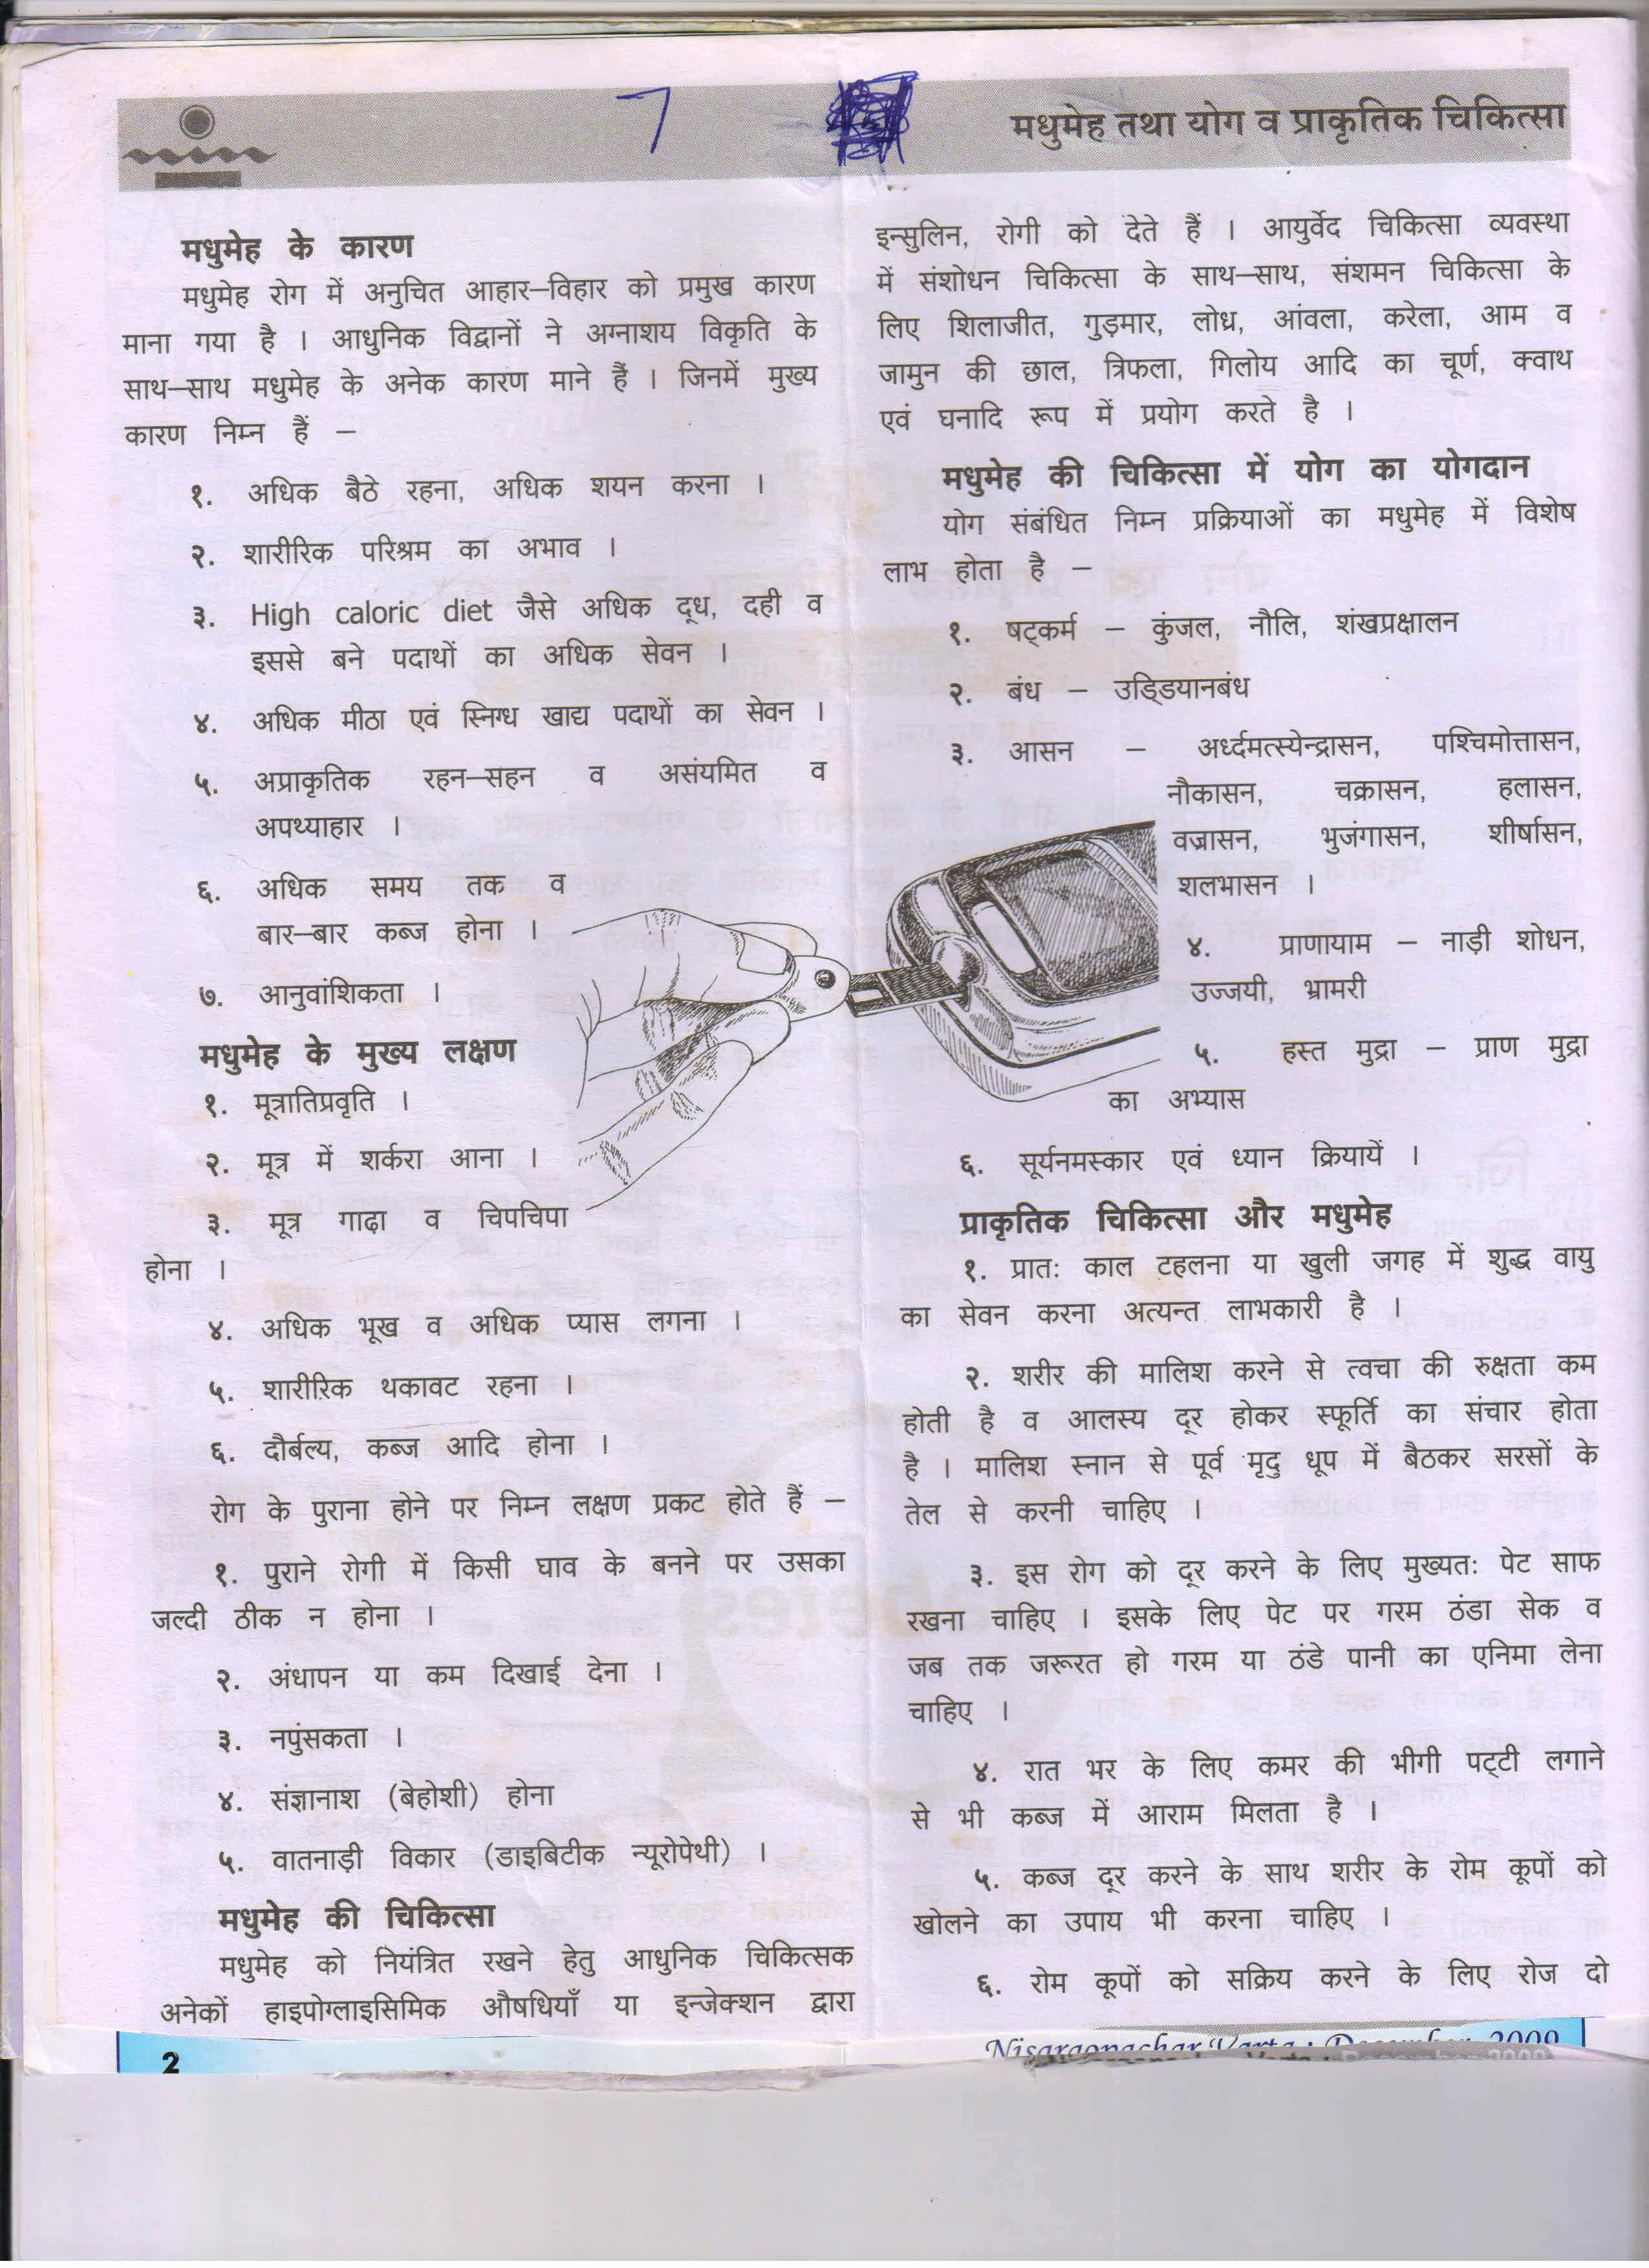 7
मधुमेह तथा योग व प्राकृतिक चिकित्सा
मधुमेह के कारण
मधुमेह रोग में अनुचित आहार–विहार को प्रमुख कारण
माना गया है । आधुनिक विद्वानों ने अग्नाशय विकृति के
साथ–साथ मधुमेह के अनेक कारण माने हैं । जिनमें मुख्य
कारण निम्न हैं –
१. अधिक बैठे रहना, अधिक शयन करना ।
२. शारीरिक परिश्रम का अभाव ।
३. High caloric diet जैसे अधिक दूध, दही व
इससे बने पदाथों का अधिक सेवन ।
४. अधिक मीठा एवं स्निग्ध खाद्य पदाथों का सेवन ।
५. अप्राकृतिक रहन–सहन व असंयमित व
अपथ्याहार ।
६. अधिक समय तक व
बार–बार कब्ज होना ।
७. आनुवांशिकता ।
मधुमेह के मुख्य लक्षण
१. मूत्रातिप्रवृति ।
२. मूत्र में शर्करा आना ।
३. मूत्र गाढ़ा व चिपचिपा
होना ।
४. अधिक भूख व अधिक प्यास लगना ।
५. शारीरिक थकावट रहना ।
६. दौर्बल्य, कब्ज आदि होना ।
रोग के पुराना होने पर निम्न लक्षण प्रकट होते हैं –
१. पुराने रोगी में किसी घाव के बनने पर उसका
जल्दी ठीक न होना ।
२. अंधापन या कम दिखाई देना ।
३. नपुंसकता ।
४. संज्ञानाश (बेहोशी) होना
५. वातनाड़ी विकार (डाइबिटीक न्यूरोपेथी) ।
मधुमेह की चिकित्सा
मधुमेह को नियंत्रित रखने हेतु आधुनिक चिकित्सक
अनेकों हाइपोग्लाइसिमिक औषधियाँ या इन्जेक्शन द्वारा
इन्सुलिन, रोगी को देते हैं । आयुर्वेद चिकित्सा व्यवस्था
में संशोधन चिकित्सा के साथ–साथ, संशमन चिकित्सा के
लिए शिलाजीत, गुड़मार, लोध्र, आंवला, करेला, आम व
जामुन की छाल, त्रिफला, गिलोय आदि का चूर्ण, क्वाथ
एवं घनादि रूप में प्रयोग करते है ।
मधुमेह की चिकित्सा में योग का योगदान
योग संबंधित निम्न प्रक्रियाओं का मधुमेह में विशेष
लाभ होता है –
१. षट्कर्म – कुंजल, नौलि, शंखप्रक्षालन
२. बंध – उड्डियानबंध
३. आसन – अर्ध्दमत्स्येन्द्रासन, पश्चिमोत्तासन,
नौकासन, चक्रासन, हलासन,
वज्रासन, भुजंगासन, शीर्षासन,
शलभासन ।
४. प्राणायाम – नाड़ी शोधन,
उज्जयी, भ्रामरी
५. हस्त मुद्रा – प्राण मुद्रा
का अभ्यास
६. सूर्यनमस्कार एवं ध्यान क्रियायें ।
प्राकृतिक चिकित्सा और मधुमेह
१. प्रातः काल टहलना या खुली जगह में शुद्ध वायु
का सेवन करना अत्यन्त लाभकारी है ।
२. शरीर की मालिश करने से त्वचा की रुक्षता कम
होती है व आलस्य दूर होकर स्फूर्ति का संचार होता
है । मालिश स्नान से पूर्व मृदु धूप में बैठकर सरसों के
तेल से करनी चाहिए ।
३. इस रोग को दूर करने के लिए मुख्यतः पेट साफ
रखना चाहिए । इसके लिए पेट पर गरम ठंडा सेक व
जब तक जरूरत हो गरम या ठंडे पानी का एनिमा लेना
चाहिए ।
४. रात भर के लिए कमर की भीगी पट्टी लगाने
से भी कब्ज में आराम मिलता है ।
५. कब्ज दूर करने के साथ शरीर के रोम कूपों को
खोलने का उपाय भी करना चाहिए ।
६. रोम कूपों को सक्रिय करने के लिए रोज दो
2
Nisargopachar Varta : December, 2009